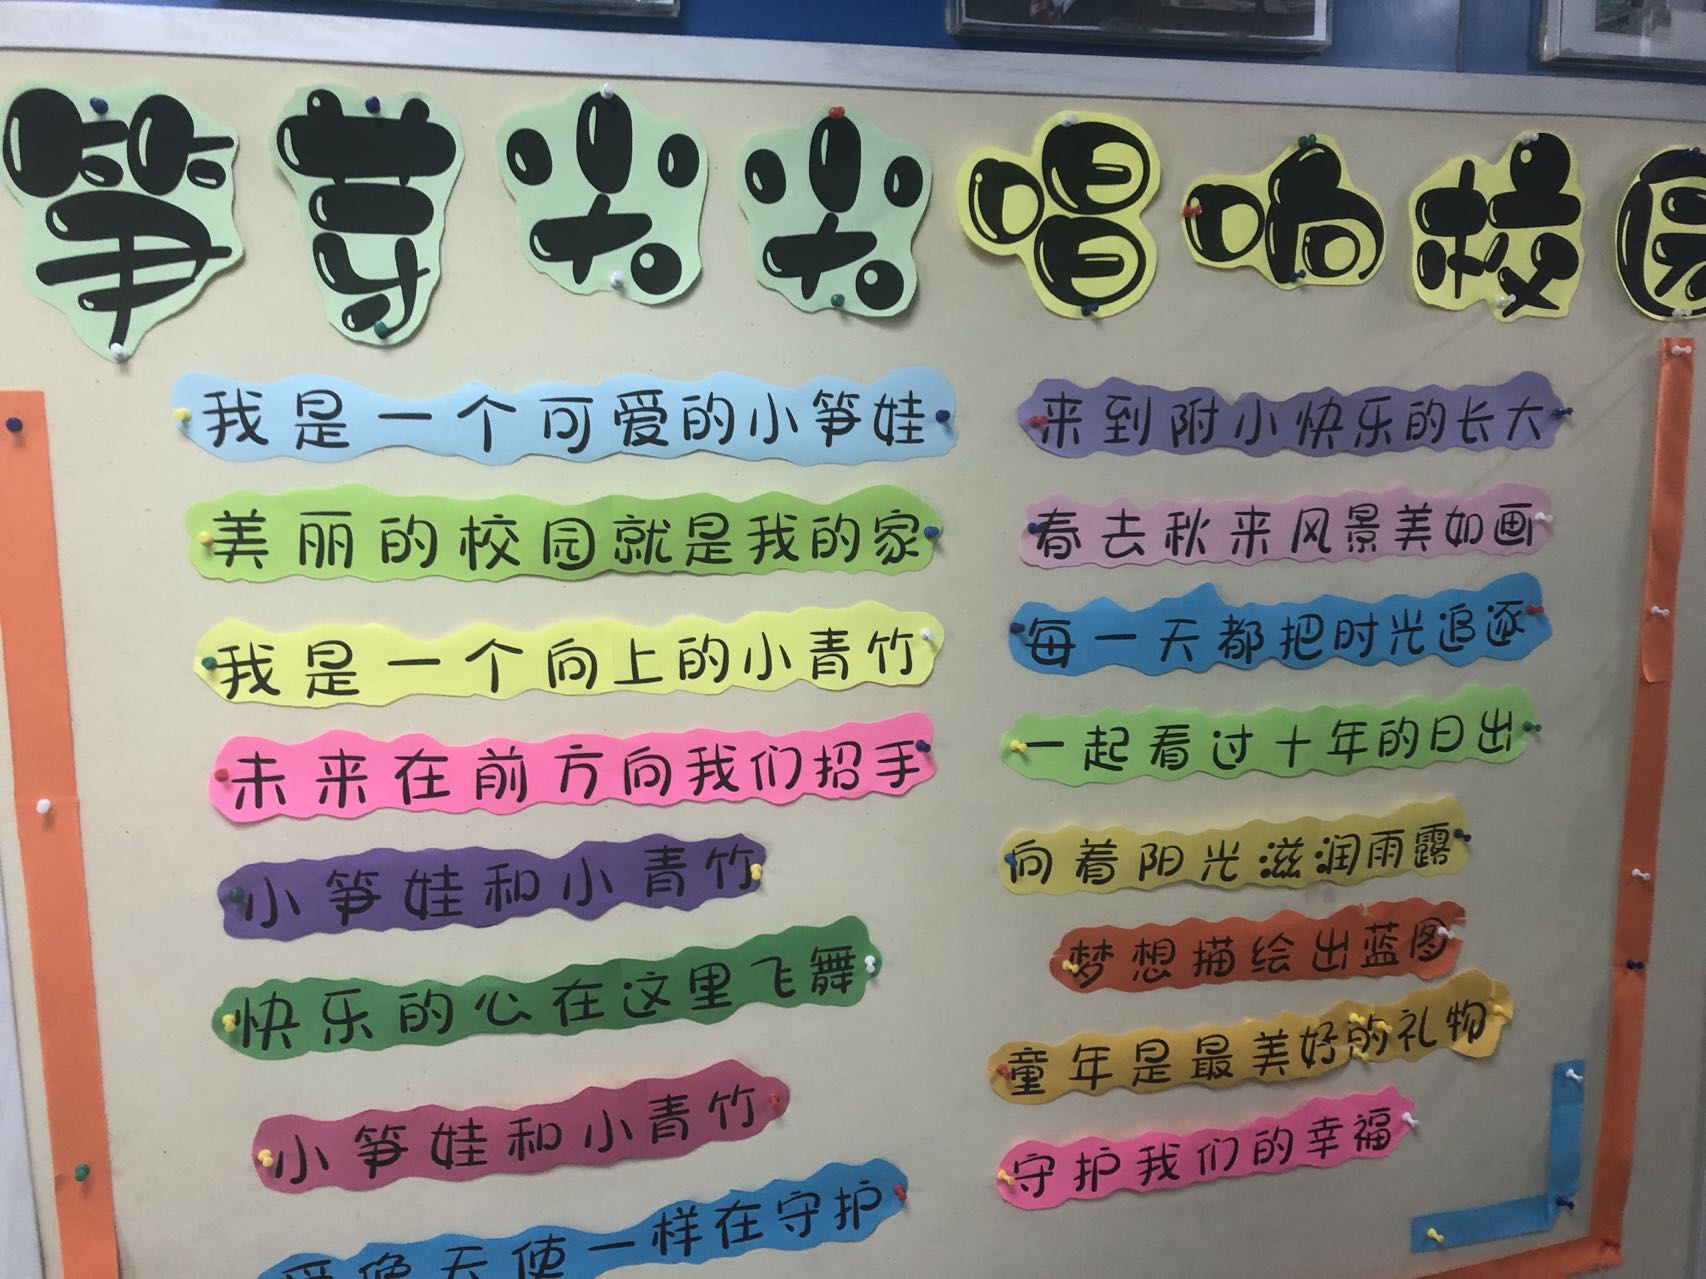 笋芽尖尖唱响校园
我是一个可爱的小笋娃
美丽的校园就是我的家
我是一个向上的小青竹
未来在前方向我们招手
小笋娃和小青竹
快乐的心在这里飞舞
小笋娃和小青竹
爱像天使一样在守护
来到附小快乐的长大
春去秋来风景美如画
每一天都把时光追逐
一起看过十年的日出
向着阳光滋润雨露
梦想描绘出蓝图
童年是最美好的礼物
守护我们的幸福